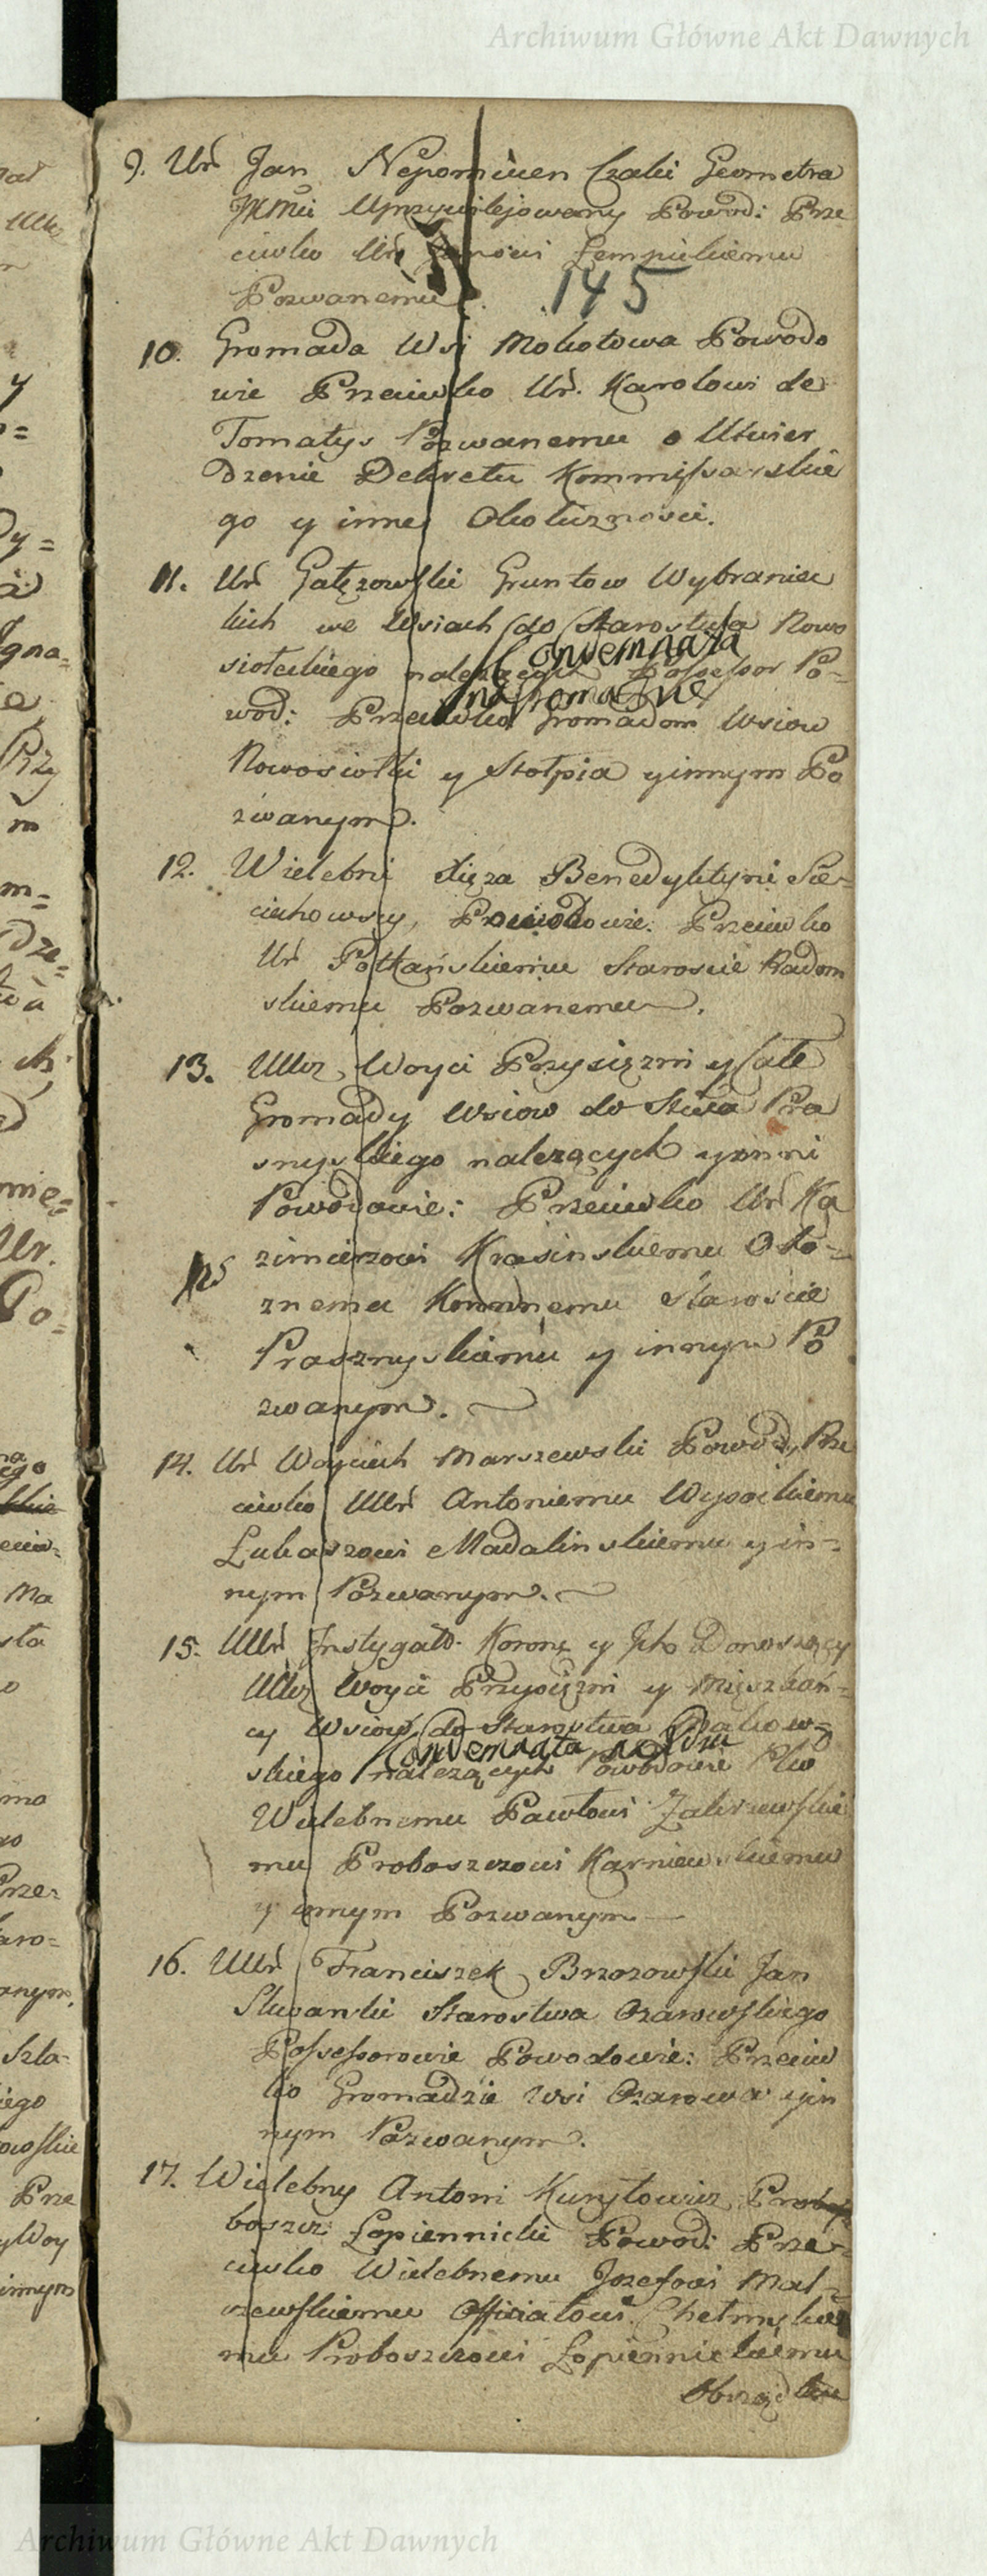 Archiwum Główne Akt Dawnych
9. Ur Jan Nepomucen Czaki Geometra
JKMci Uprzywilejowany Powod: Prze
ciwko Ur Łempickiemu
Pozwanemu.
145
10. Gromada Wsi Mokotowa Powodo
wie Przeciwko Ur. Karolowi de
Tomatys Pozwanemu o Utwier
dzenie Dekretu Kommissarskie
go y inne Okoliczności.
11. Ur Gałęzowski Gruntow Wybraniec
kich we Wsiach do Starostwa Nowo
Condemnata
siołeckiego należących Possessor Po-
na Gromadzie
wod: Przeciwko Gromadom Wsiow
Nowosiołki y Stołpia y innym Po
zwanym.
12. Wielebni Xięża Benedyktyni Sie-
ciechowscy, Powodowie: Przeciwko
Ur Potkańskiemu Staroscie Radom
skiemu Pozwanemu.
13. Uczc. Woyci Przysięzni y Całe
Gromady Wsiow do Stwa Pra
snyskiego nalezących y inni
Powodowie: Przeciwko Ur Ka
zimierzowi Krasinskiemu Obo-
125
znemu Koronnemu Staroscie
Prasznyskiemu y innym Po
zwanym.
14. Ur Woyciech Marszewski Powod, Prze
ciwko UUr Antoniemu Wysockiemu
Łukaszowi Madalinskiemu y in-
nym Pozwanym.
15. UUr Instygato. Koronę y Jch Donoszący
Uczc Woyci Przysięzni y Mięszkań-
cy Wsiow do Starostwa
Condemnata
skiego nalezących Powodowie Pko
Wielebnemu Pawłowi Zakrzewskie
mu Proboszczowi Karniewskiemu
y innym Pozwanym
16. UUr Franciszek Brzozowski Jan
Słuzanski Starostwa Ozarowskiego
Possessorowie Powodowie: Przeciw
ko Gromadzie Wsi Ozarowa y in
nym Pozwanym.
17. Wielebny Antoni Kuryłowicz Pro
boszcz Łopiennicki Powod: Prze-
ciwko Wielebnemu Jozefowi Mal-
czewskiemu Officiałowi Chełmskie
mu Proboszczowi Łopiennickiemu
Obrządku
Archiwum Główne Akt Dawnych